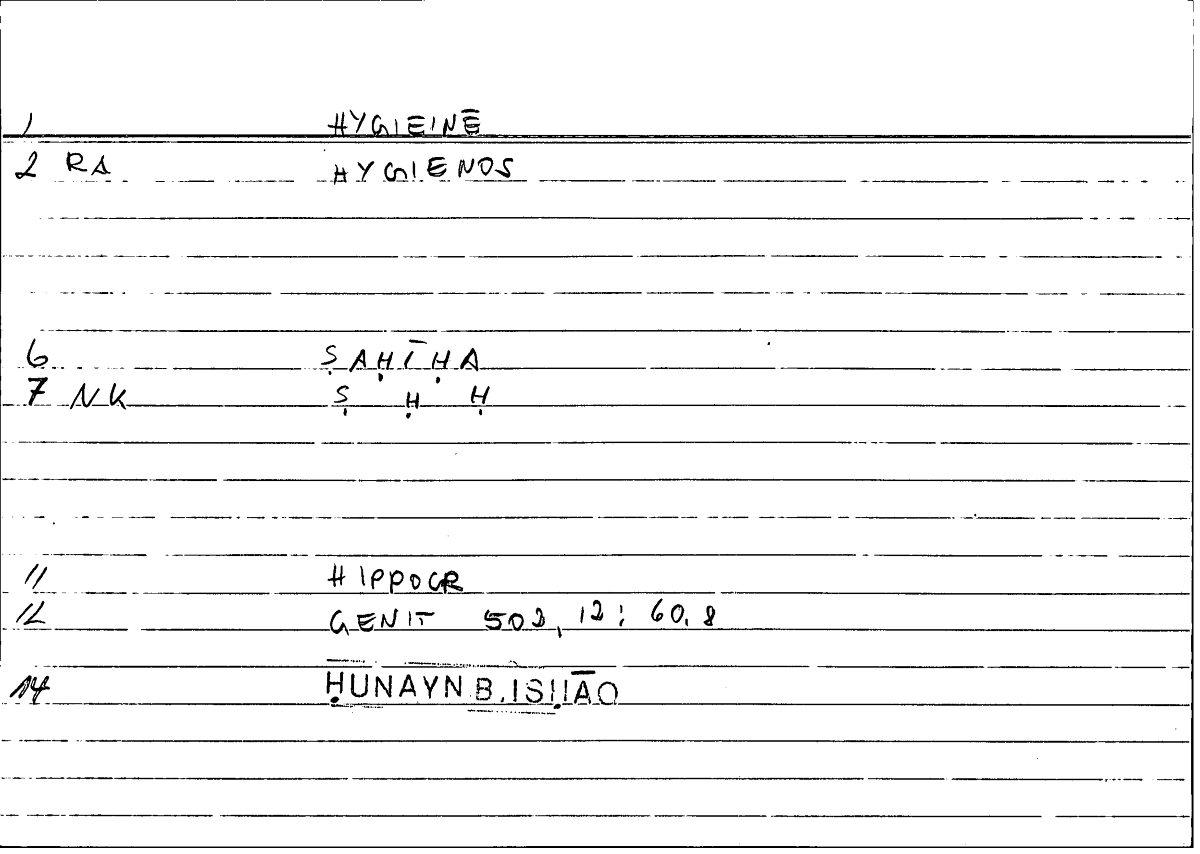 1 HYGIEINĒ
2 RA HYGIENOS
6 ṢAḤĪḤA
7 NK Ṣ Ḥ Ḥ
11 HIPPOCR
12 GENIT 502,12: 60.8
14 ḤUNAYN B. ISḤĀQ